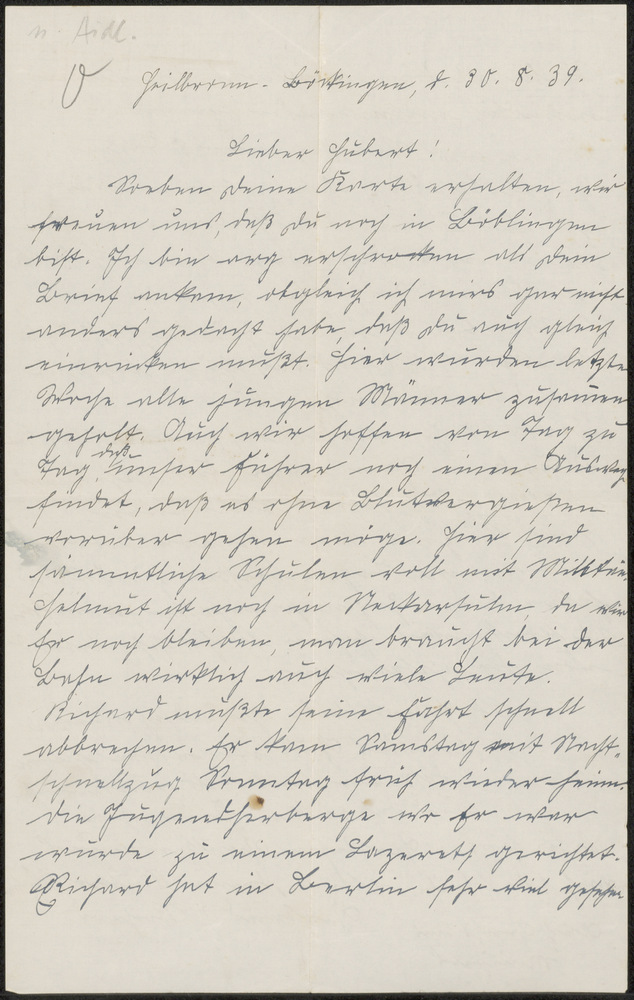 n. Aidl.
Heilbronn-Böckingen, d. 30. 8. 39.
Lieber Hubert!
Soeben Deine Karte erhalten, wir
freuen uns, daß Du noch in Böblingen
bist. Ich bin arg erschrocken als Dein
Brief ankam, obgleich ich mirs gar nicht
anders gedacht habe, daß Du auch gleich
einrücken mußt. Hier wurden letzte
Woche alle jungen Männer zusammen
geholt. Auch wir hoffen von Tag zu
Tag, daß unser Führer noch einen Ausweg
findet, daß es ohne Blutvergießen
vorüber gehen möge. Hier sind
sämmtliche Schulen voll mit Militär.
Helmut ist noch in Neckarsulm, da wird
Er noch bleiben, man braucht bei der
Bahn wirklich auch viele Leute.
Richard mußte seine Fahrt schnell
abbrechen. Er kam Samstag mit Nacht-
schnellzug Sonntag früh wieder heim.
Die Jugendherberge wo Er war
wurde zu einem Lazareth gerichtet.
Richard hat in Berlin sehr viel gesehen